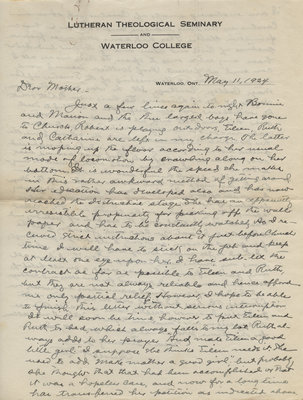 LUTHERAN THEOLOGICAL SEMINARY
AND
WATERLOO COLLEGE
WATERLOO, ONT. May 11, 1924
Dear Mother:-
Just a few lines again to-night. Bonnie
and Marion and the three largest boys have gone
to Church, Robert is playing outdoors, Eileen, Ruth
and Catharine are left in my charge. The latter
is mopping up the floor according to her usual
mode of locomotion by crawling along on her
bottom. It is wonderful the speed she makes
in this rather awkward method of getting around.
Her education has developed also and has now
reached the destructive stage. She has an apparently
irresistible propensity for picking off the wall
paper and has to be continually watched. As I re-
ceived strict instructions about it just before Church
time I will have to stick on the job and keep
at least one eye upon her. I have sub-let the
contract as far as possible to Eileen and Ruth,
but they are not always reliable and hence afford
me only partial relief. However, I hope to be able
to finish this letter without serious interruption.
It will soon be time however to put Eileen and
Ruth to bed which always falls to my lot. Ruth al-
ways adds to her prayer "And make Eileen a good
little girl". I suppose the Eileen used it
used to add "Make mother a good girl" but probably
she thought that that had been accomplished or that
it was a hopeless case, and now for a long time
has transferred her petition as indicated above.